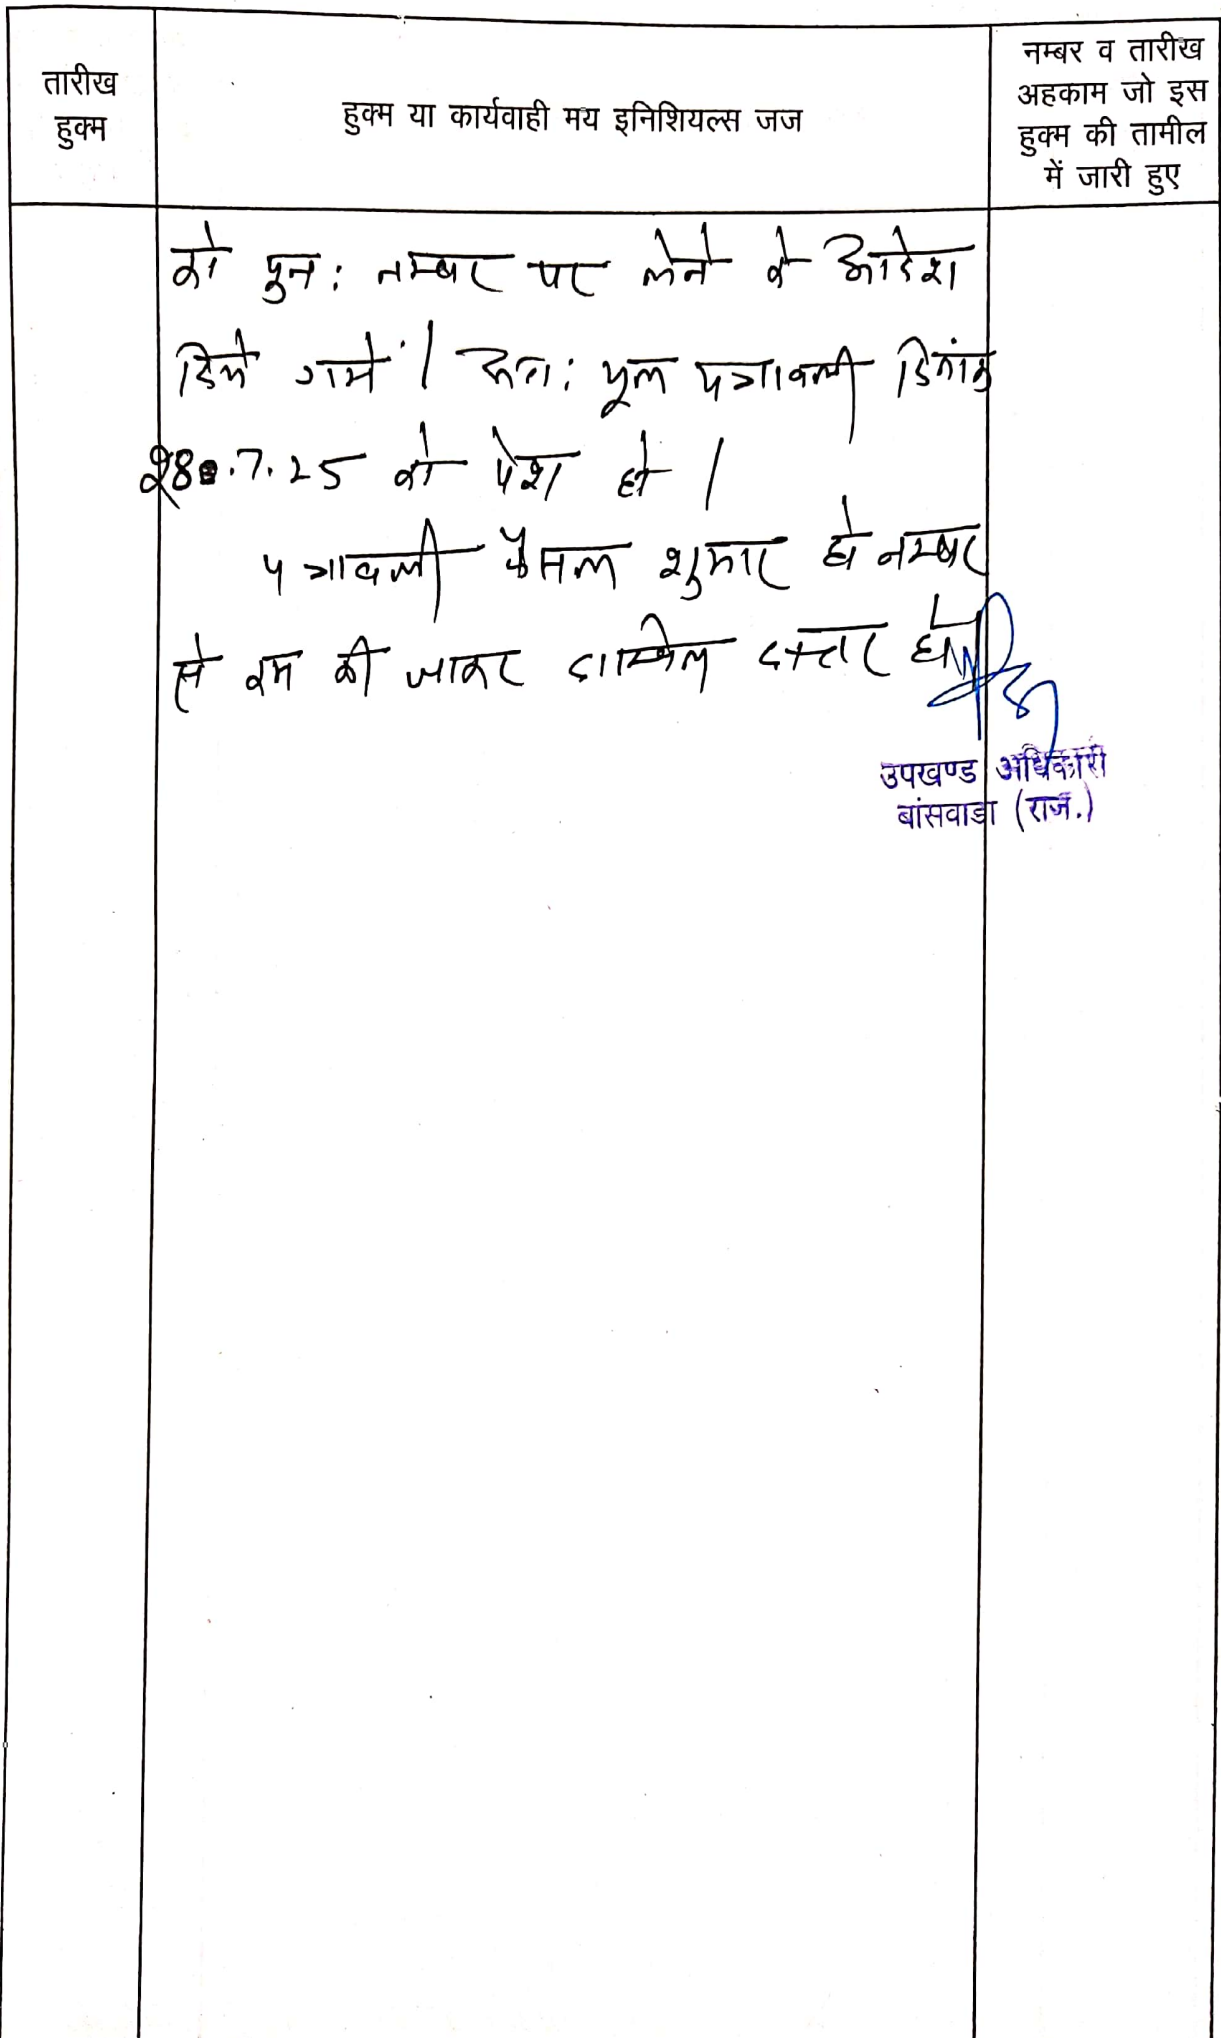 तारीख
हुक्म
हुक्म या कार्यवाही मय इनिशियल्स जज
नम्बर व तारीख
अहकाम जो इस
हुक्म की तामील
में जारी हुए
को पुन: नम्बर पर लेने के आदेश
दिये गये। अत: मूल पत्रावली दिनांक
28.7.25 को पेश हो।
पत्रावली फैसल शुमार हो नम्बर
से कम की जाकर दाखिल दफ्तर हो
उपखण्ड अधिकारी
बांसवाडा (राज.)